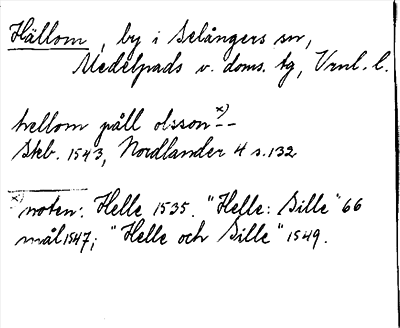 Hällom, by i Selångers sn,
Medelpads v. doms. tg, Vrnl. l.
hellom påll olsson x) --
Skb. 1543, Nordlander 4 s. 132
x) noten: Helle 1535. "Helle: Sille" 66
mål 1547; "Helle och Sille" 1549.